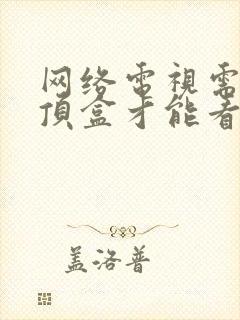 网络电视需
顶盒才能看
盖洛普